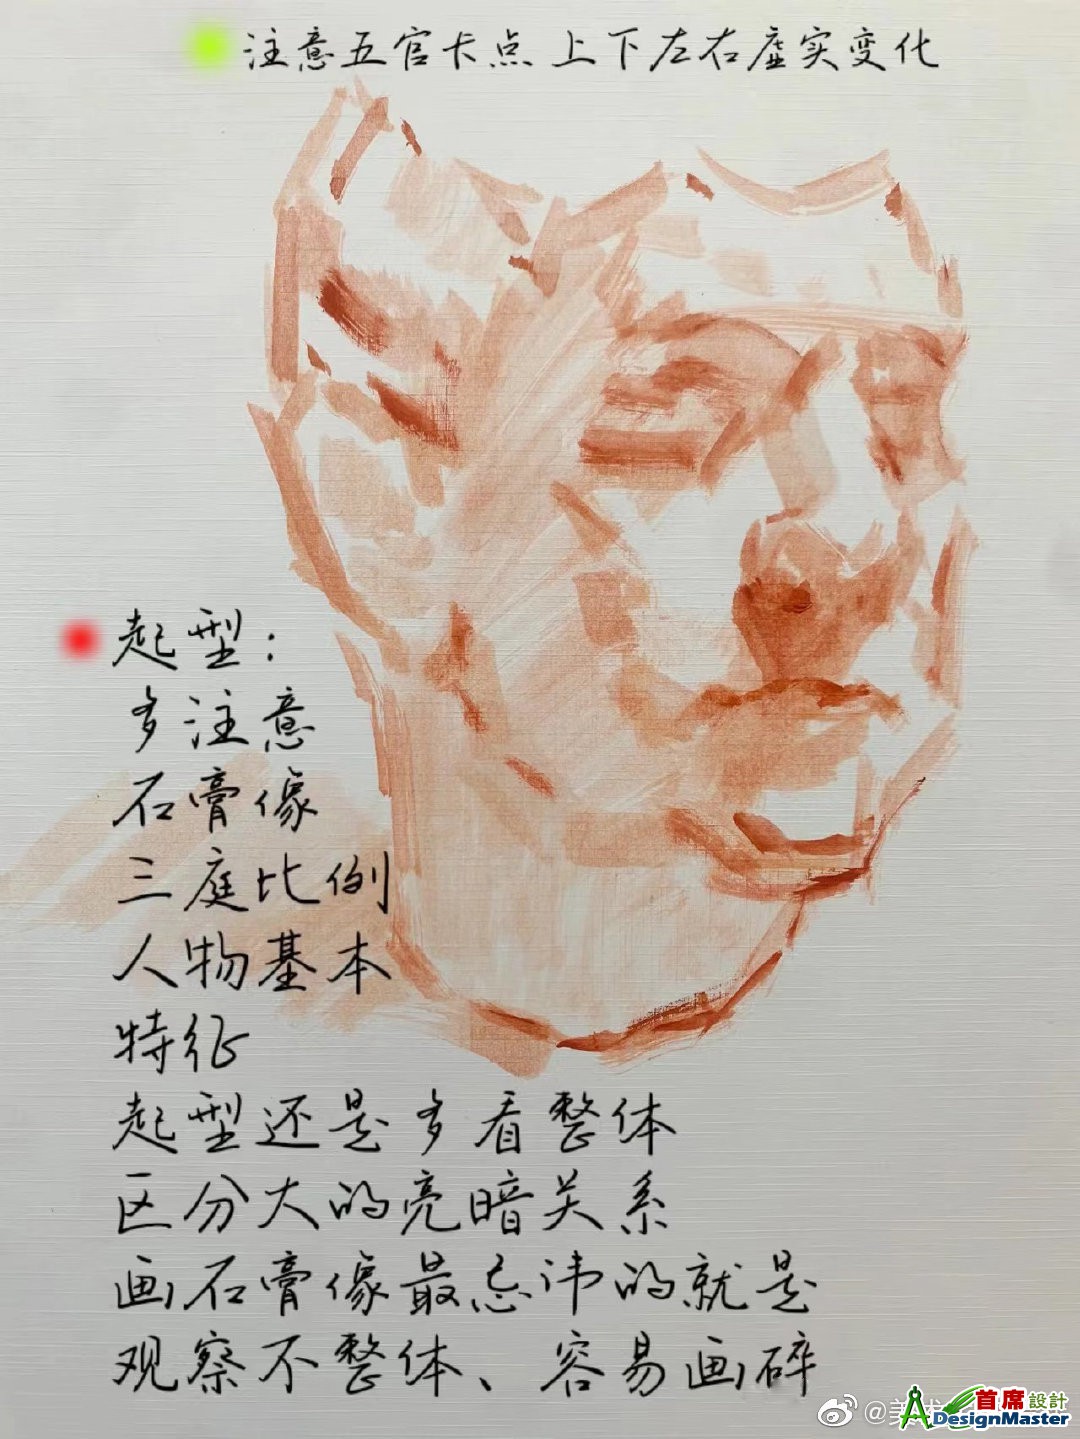 注意五官卡点 上下左右虚实变化
起型：
多注意
石膏像
三庭比例
人物基本
特征
起型还是多看整体
区分大的亮暗关系
画石膏像最忌讳的就是
观察不整体、容易画碎
@美术
首席設計
ADesignMaster